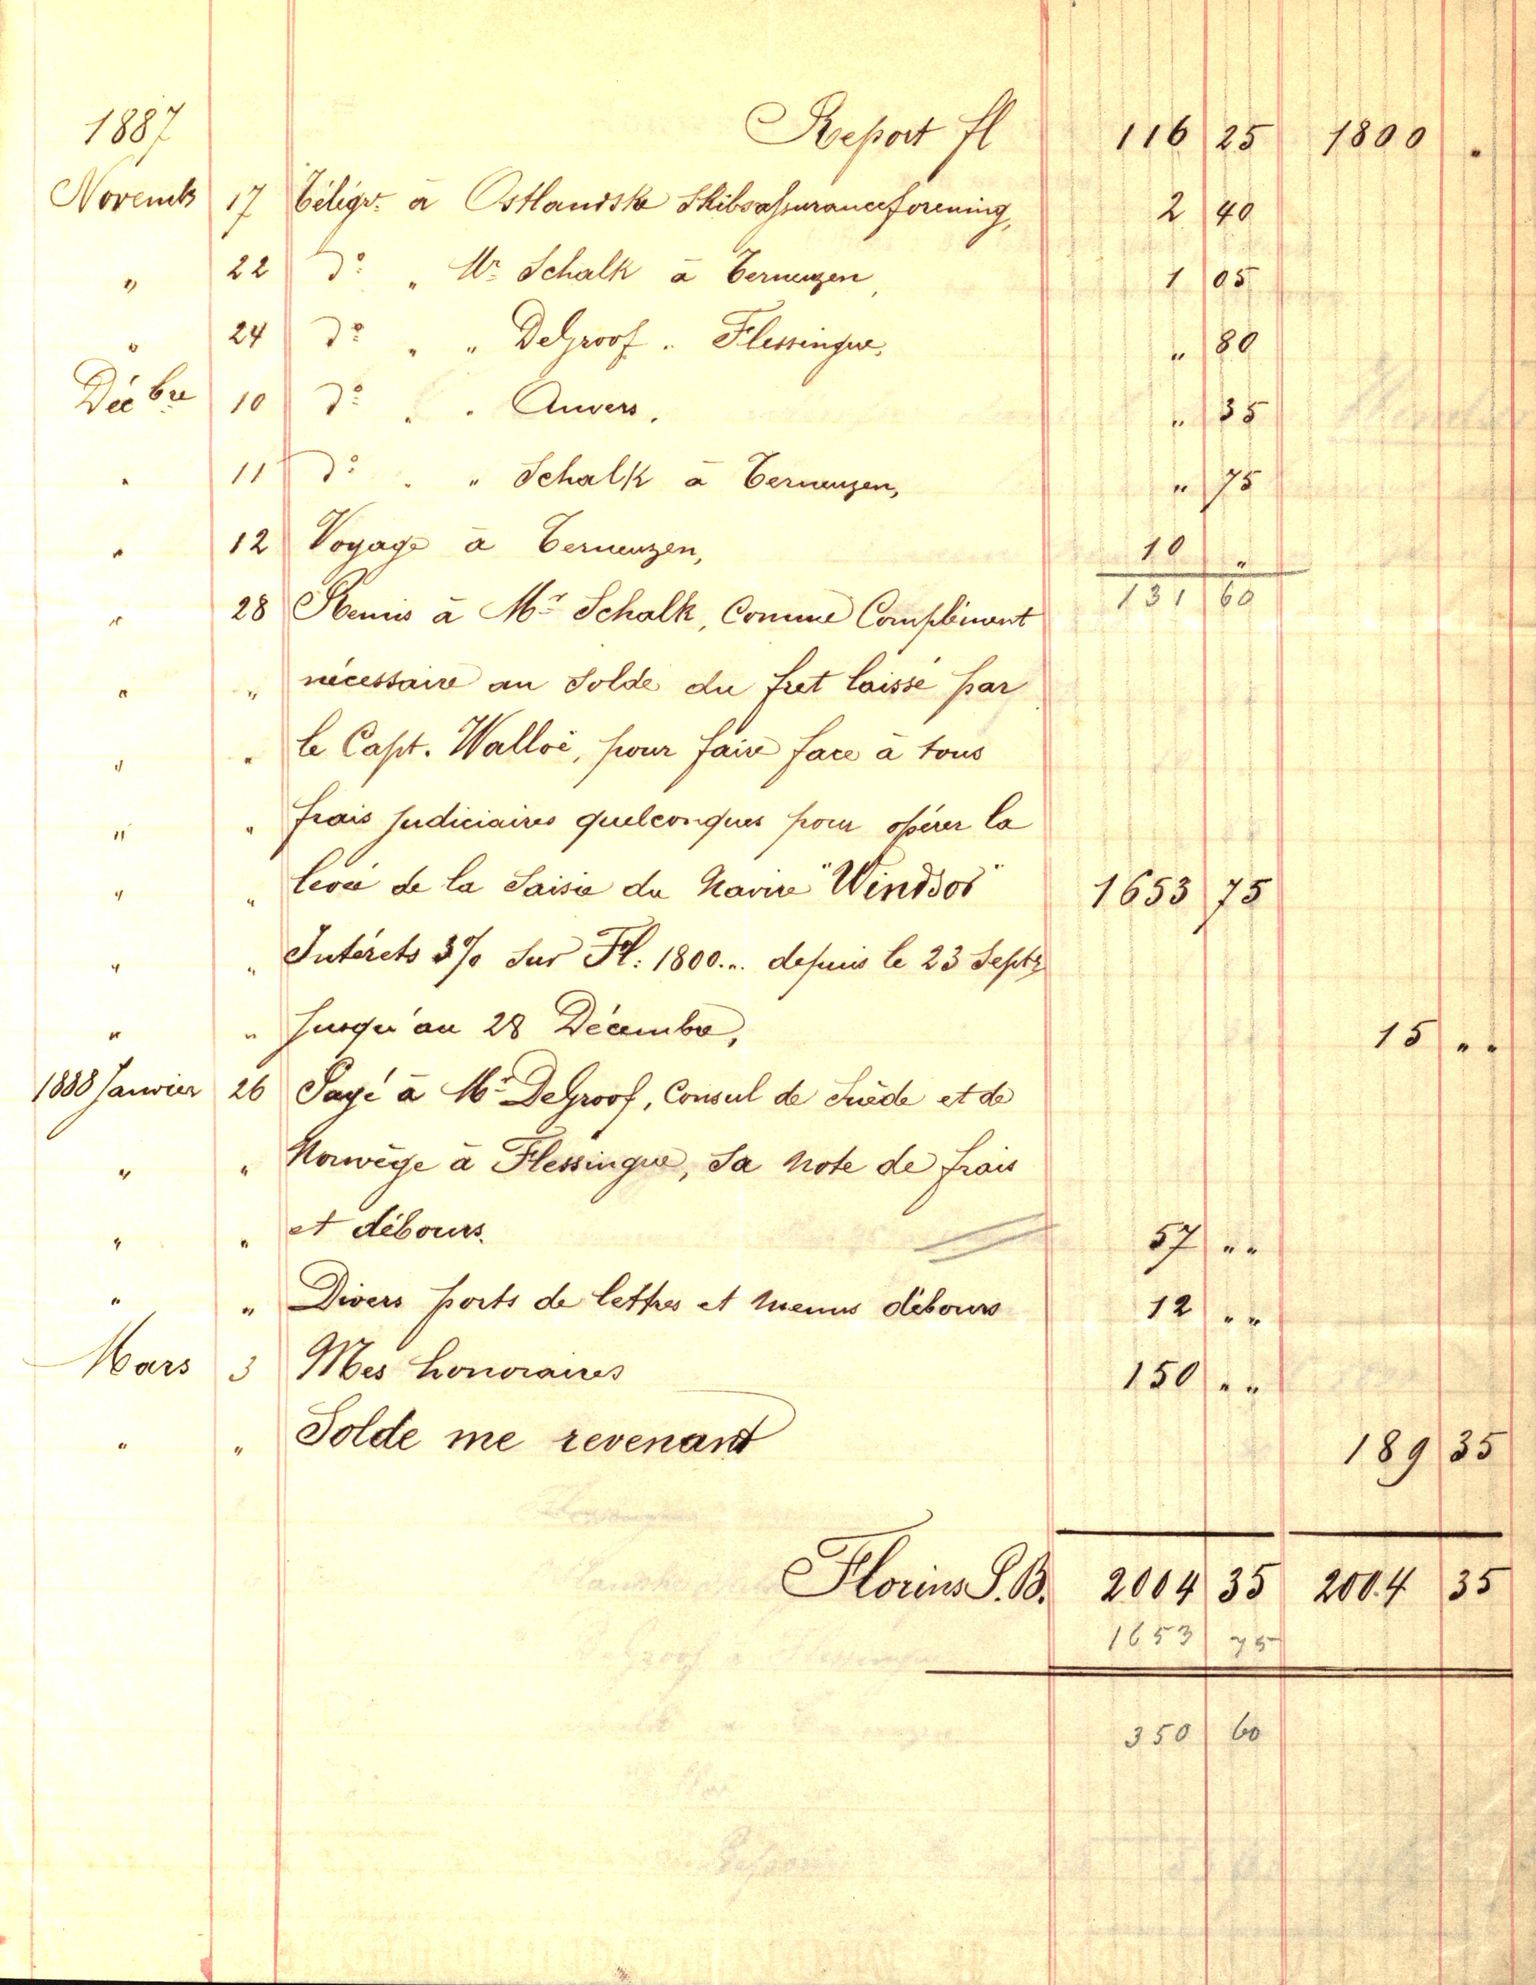 1887 Report fl 116 25 1800 .
Novemb 17 Télégr. à Ostlandske Skibsassuranceforening, 2 40
" 22 do " Mr Schalk à Terneuzen, 1 05
" 24 do " " DeGroof " Flessingue, " 80
Décbre 10 do " " Anvers, " 35
" 11 do " " Schalk à Terneuzen, " 75
" 12 Voyage à Terneuzen, 10 "
131 60
" 28 Remis à Mr Schalk, comme Complément
" " nécessaire au solde du fret laissé par
" " le Capt. Walloë, pour faire face à tous
" " frais judiciaires quelconques pour opérer la
" " levée de la Saisie du Navire "Windsor" 1653 75
" " Intérets 3% sur Fl: 1800... depuis le 23 Septr
" " jusqu'au 28 Décembre, 15 " "
1888 Janvier 26 Payé à Mr DeGroof, Consul de Suède et de
" " Norwège à Flessingue, sa note de frais
" " et débours. 57 " "
" " Divers ports de lettres et menus débours 12 " "
Mars 3 Mes honoraires 150 " "
" " Solde me revenant 189 35
Florins P.B. 2004 35 2004 35
1653 75
350 60